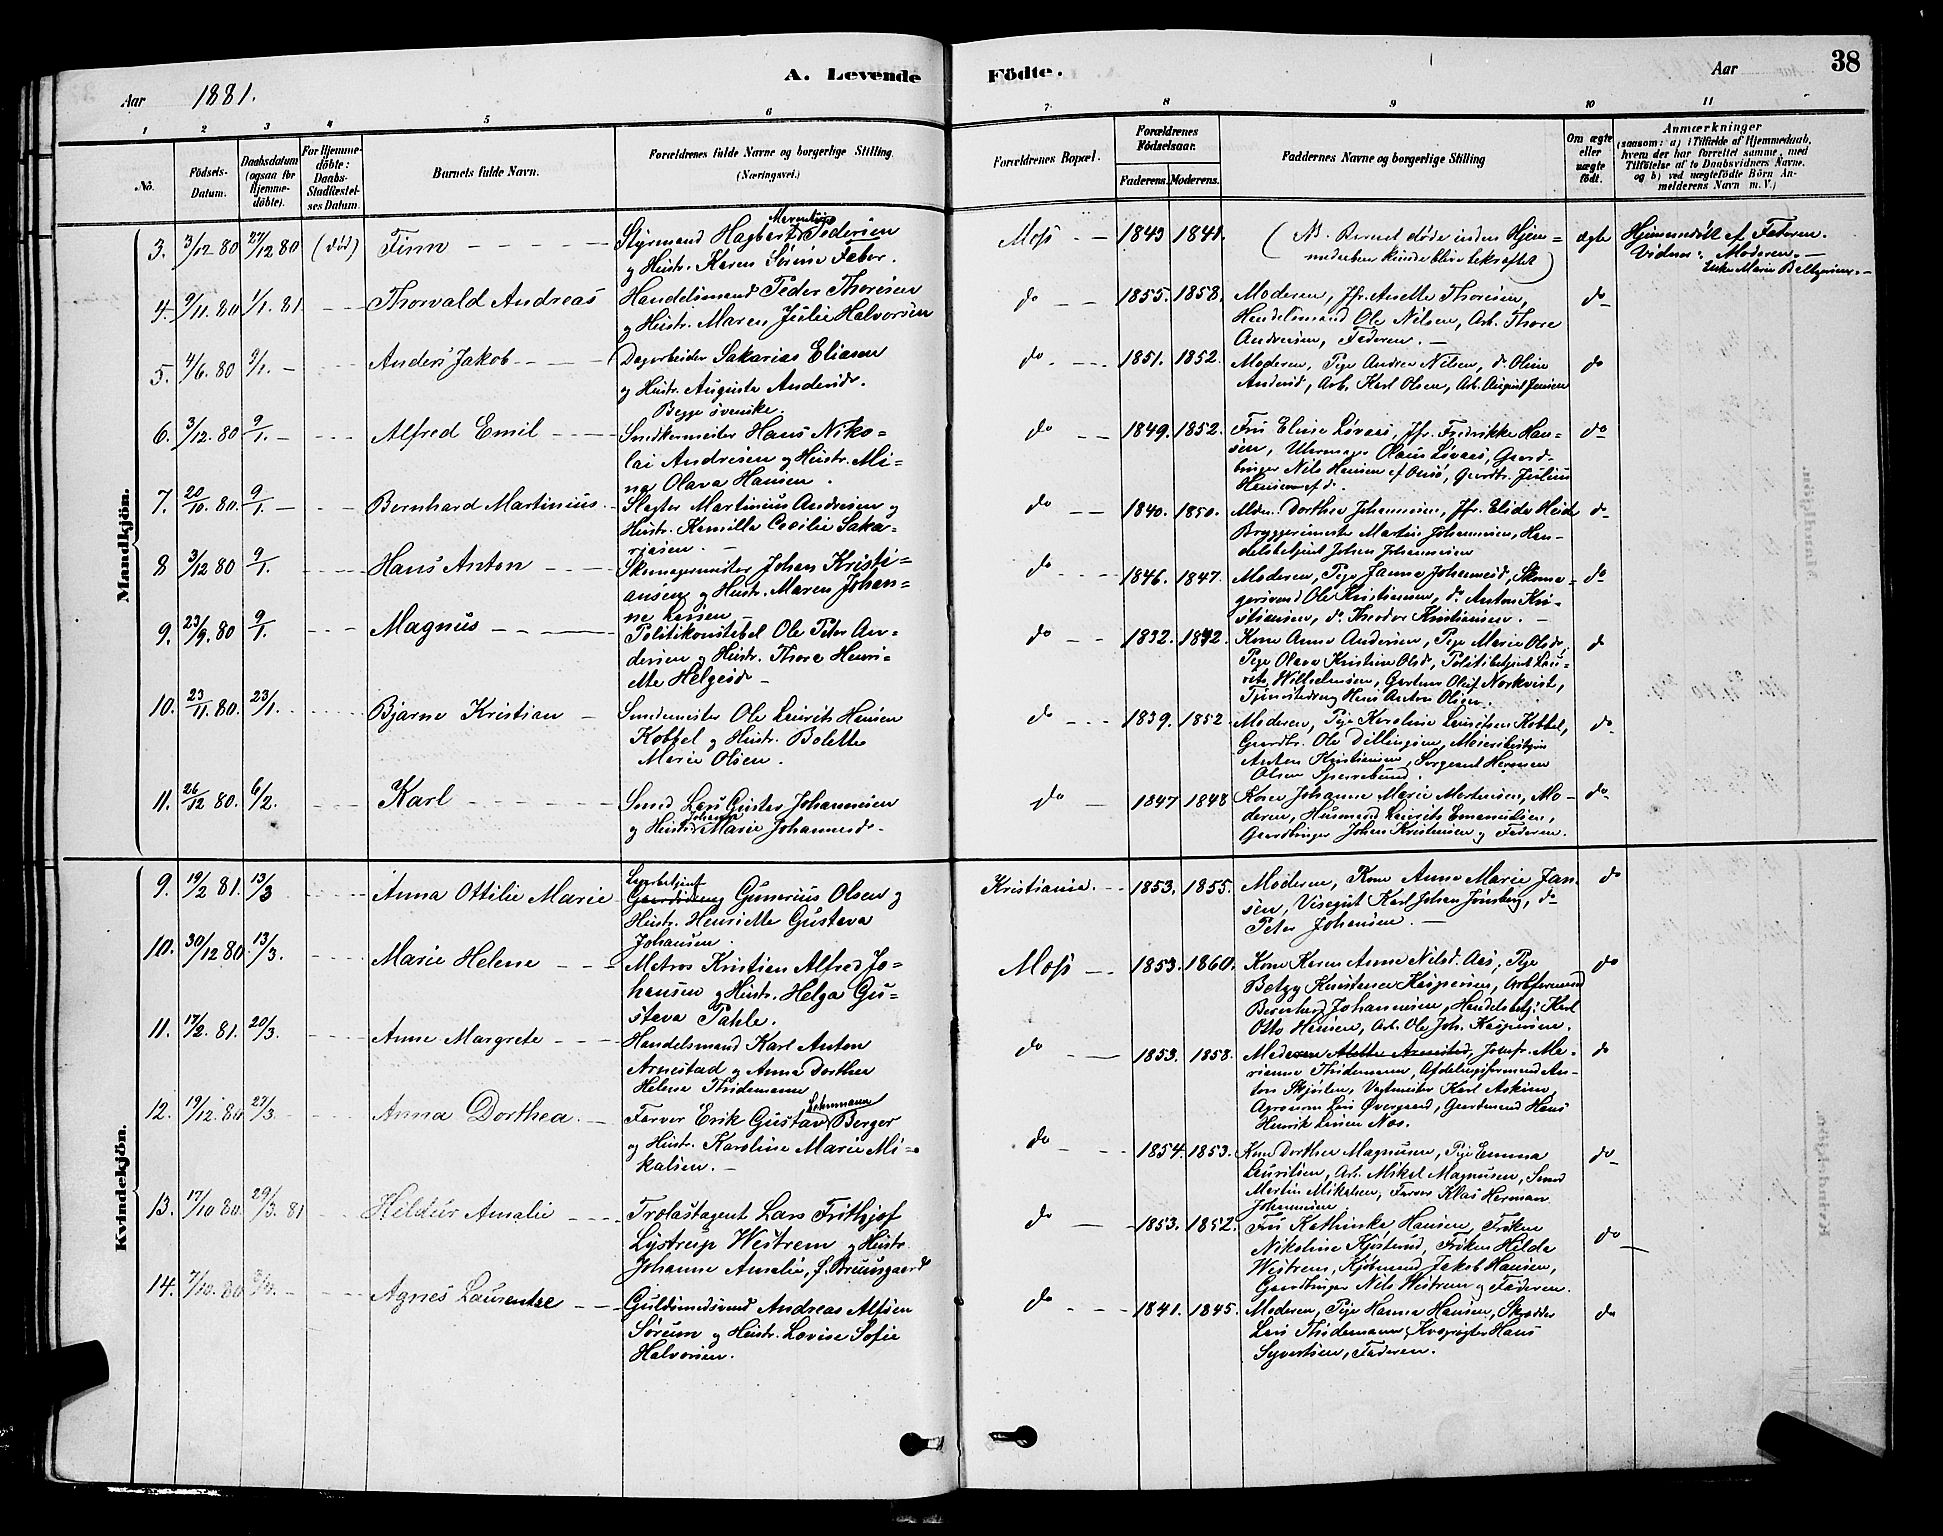 A. Levende
Födte.
38
Aar 1881.
Aar
1 2 3 4 5 6 7. 8 9 10 11
No.
Födsels-Datum.
Daabsdatum (ogsaa for Hjemme-döbte).
For Hjemme-döbte: Daabs-Stadfæstel-ses Datum.
Barnets fulde Navn.
Forældrenes fulde Navne og borgerlige Stilling. (Næringsvei.)
Forældrenes Bopæl.
Forældrenes Födselsaar.
Faderens. Moderens.
Faddernes Navne og borgerlige Stilling
Om ægte eller uægte födt.
Anmærkninger
(saasom: a) i Tilfælde af Hjemmedaab,
hvem der har forrettet samme, med
Tilföielse af to Daabsvidners Navne,
og b) ved uægtefödte Börn An-
melderens Navn m. V.)
Mandkjön.
3. 3/12 80 27/12 80 (död) Finn
Styrmand Hagbart Pedersen
og Hustr. Karen Sörine Faber.
Moss 1843 1841.
(NB. Barnet döde inden Hjem-
medaaben kunde blive bekræftet)
ægte
Hjemmedöbt af Faderen.
Vidner: Moderen.
4. 9/11. 80 1/1. 81 Thorvald Andreas
Handelsmand Peder Thoresen
og Hustr. Maren Julie Halvorsen
do 1855. 1858.
Moderen, Jfr. Anette Thoresen,
Handelsmand Ole Nilsen, Arb. Thore
Andersen, Faderen.
do
5. 4/6. 80 9/1. Anders Jakob
Dagarbeider Sakarias Eliasen
og Hustr. Auguste Andersdr.
Begge svenske.
do 1851. 1852.
Moderen, Pige Andrea Nilsen, do Oline
Andersd, Arb. Karl Olsen, Arb. August Jensen
do
6. 3/12. 80 9/1. Alfred Emil
Snedkermester Hans Niko-
lai Andresen og Hustr. Mi-
na Olava Hansen.
do 1849. 1852.
Fru Elise Lövaas, Jfr. Fredrikke Han-
sen, Uhrmager Olaus Lövaas, Gaard-
bruger Nils Hansen af Onsö, Gaardbr. Julius
Hansen af do.
do
7. 20/10. 80. 9/1. Bernhard Martinius
Slagter Martinius Andresen og
Hustr. Kamilla Cecilie Saka-
riasen.
do 1840. 1850.
Mdm. Dorthea Johannesen, Jfr. Elida Heide
Bryggerimester Martin Johannesen, Han-
delsbetjent Johan Johannesen
do
8 3/12 80 9/1. Hans Anton
Skomagermester Johan Kristi-
ansen og Hustr. Maren Johan-
ne Larsen
do 1846. 1847.
Moderen, Pige Janna Johannesd, Skoma-
gersvend Ole Kristiansen, do Anton Kri-
stiansen, do Theodor Kristiansen.
do
9. 23/9. 80 9/1. Magnus
Politikonstabel Ole Peter An-
dersen og Hustr. Thora Henri-
ette Helgesd
do 1832. 1842.
Kone Anne Andersen, Pige Marie Olsdr,
Pige Olava Kristine Olsd, Politibetjent Lau-
rits Wilhelmsen, Gartner Oluf Norkvist,
Tjenestedreng Hans Anton Olsen.
do
10. 23/11. 80. 23/1. Bjarne Kristian
Smedmester Ole Laurits Hansen
Kobbel og Hustr. Bolette
Marie Olsen.
do 1839. 1852
Moderen, Pige Karoline Lauritsen Kobbel,
Gaardbr. Ole Dillingöen,
Anton Kristiansen, Sergeant Herman
Olsen Sparrebund.
do
11. 26/12 80. 6/2. Karl
Smed Lars Gustav Johannesen
og Hustr. Johanne Marie Johannesdr.
do 1847 1848
Kone Johanne Marie Mortensen, Mo-
deren, Husmand Laurits Emanuelsen,
Gaardbruger Johan Kristensen og Faderen.
do
Kvindekjön.
9. 19/2 81. 13/3 Anna Ottilie Marie
Gunerius Olsen og
Hustr. Henriette Gustava
Johansen.
Kristiania. 1853. 1855.
Moderen, Kone Anne Marie Jan-
sen, Visegut Karl Johan Jönsberg, do
Peter Johansen.
do
10. 30/12 80. 13/3. Marie Helene
Matros Kristian Alfred Jo-
hansen og Hustr. Helga Gu-
stava Pahle.
Moss 1853. 1860.
Kone Karen Anne Nilsd. Aas, Pige
Betzy Konstance Kaspersen, Arbformand
Bernhard Johannesen, Handelsbetj. Karl
Otto Hansen, Arb. Ole Joh. Kaspersen.
do
11. 17/2. 81. 20/3. Anne Margrete
Handelsmand Karl Anton
Arnestad og Anna Dorthea
Helene Thidemann
do 1853. 1858.
Moderen Alette Arnestad, Jomfr. Ma-
rianne Thidemann, Afdelingsformand An-
ton Skjolden, Vagtmester Karl Askim,
Agronom Lars Övergaard, Gaardmand Hans
Henrik Larsen Nes.
do
12. 19/12 80 27/3. Anna Dorthea.
Farver Erik Gustav Lehnmann Berger
og Hustr. Karoline Marie Mi-
kalsen.
do 1854. 1853.
Kone Dorthea Magnusen, Pige Emma
Lauritsen, Arb. Mikal Magnusen, Smed
Martin Mikalsen, Farver Klas Herman
Johannesen.
do
13. 17/10 80. 29/3. 81 Hildur Amalie
Trelastagent Lars Frithjof
Lystrup Westrem og Hustr
Johanne Amalie, f. Bruusgaard
do 1853. 1852.
Fru Kathinka Hansen, Fröken
Nikoline Kjöstrud, Fröken Hilda
Westrem, Kjöbmand Jakob Hansen,
Gaardbruger Nils Westrem og Faderen.
do
14. 7/10. 80 Agnes Laurentze
Guldsmedsvend Andreas Alfsen
Sörum og Hustr. Lovise Sofie
Halvorsen.
do 1841. 1845.
Moderen, Pige Hanna Hansen, Skrædder
Lars Thidemann, Hans
Syvertsen, Faderen.
do